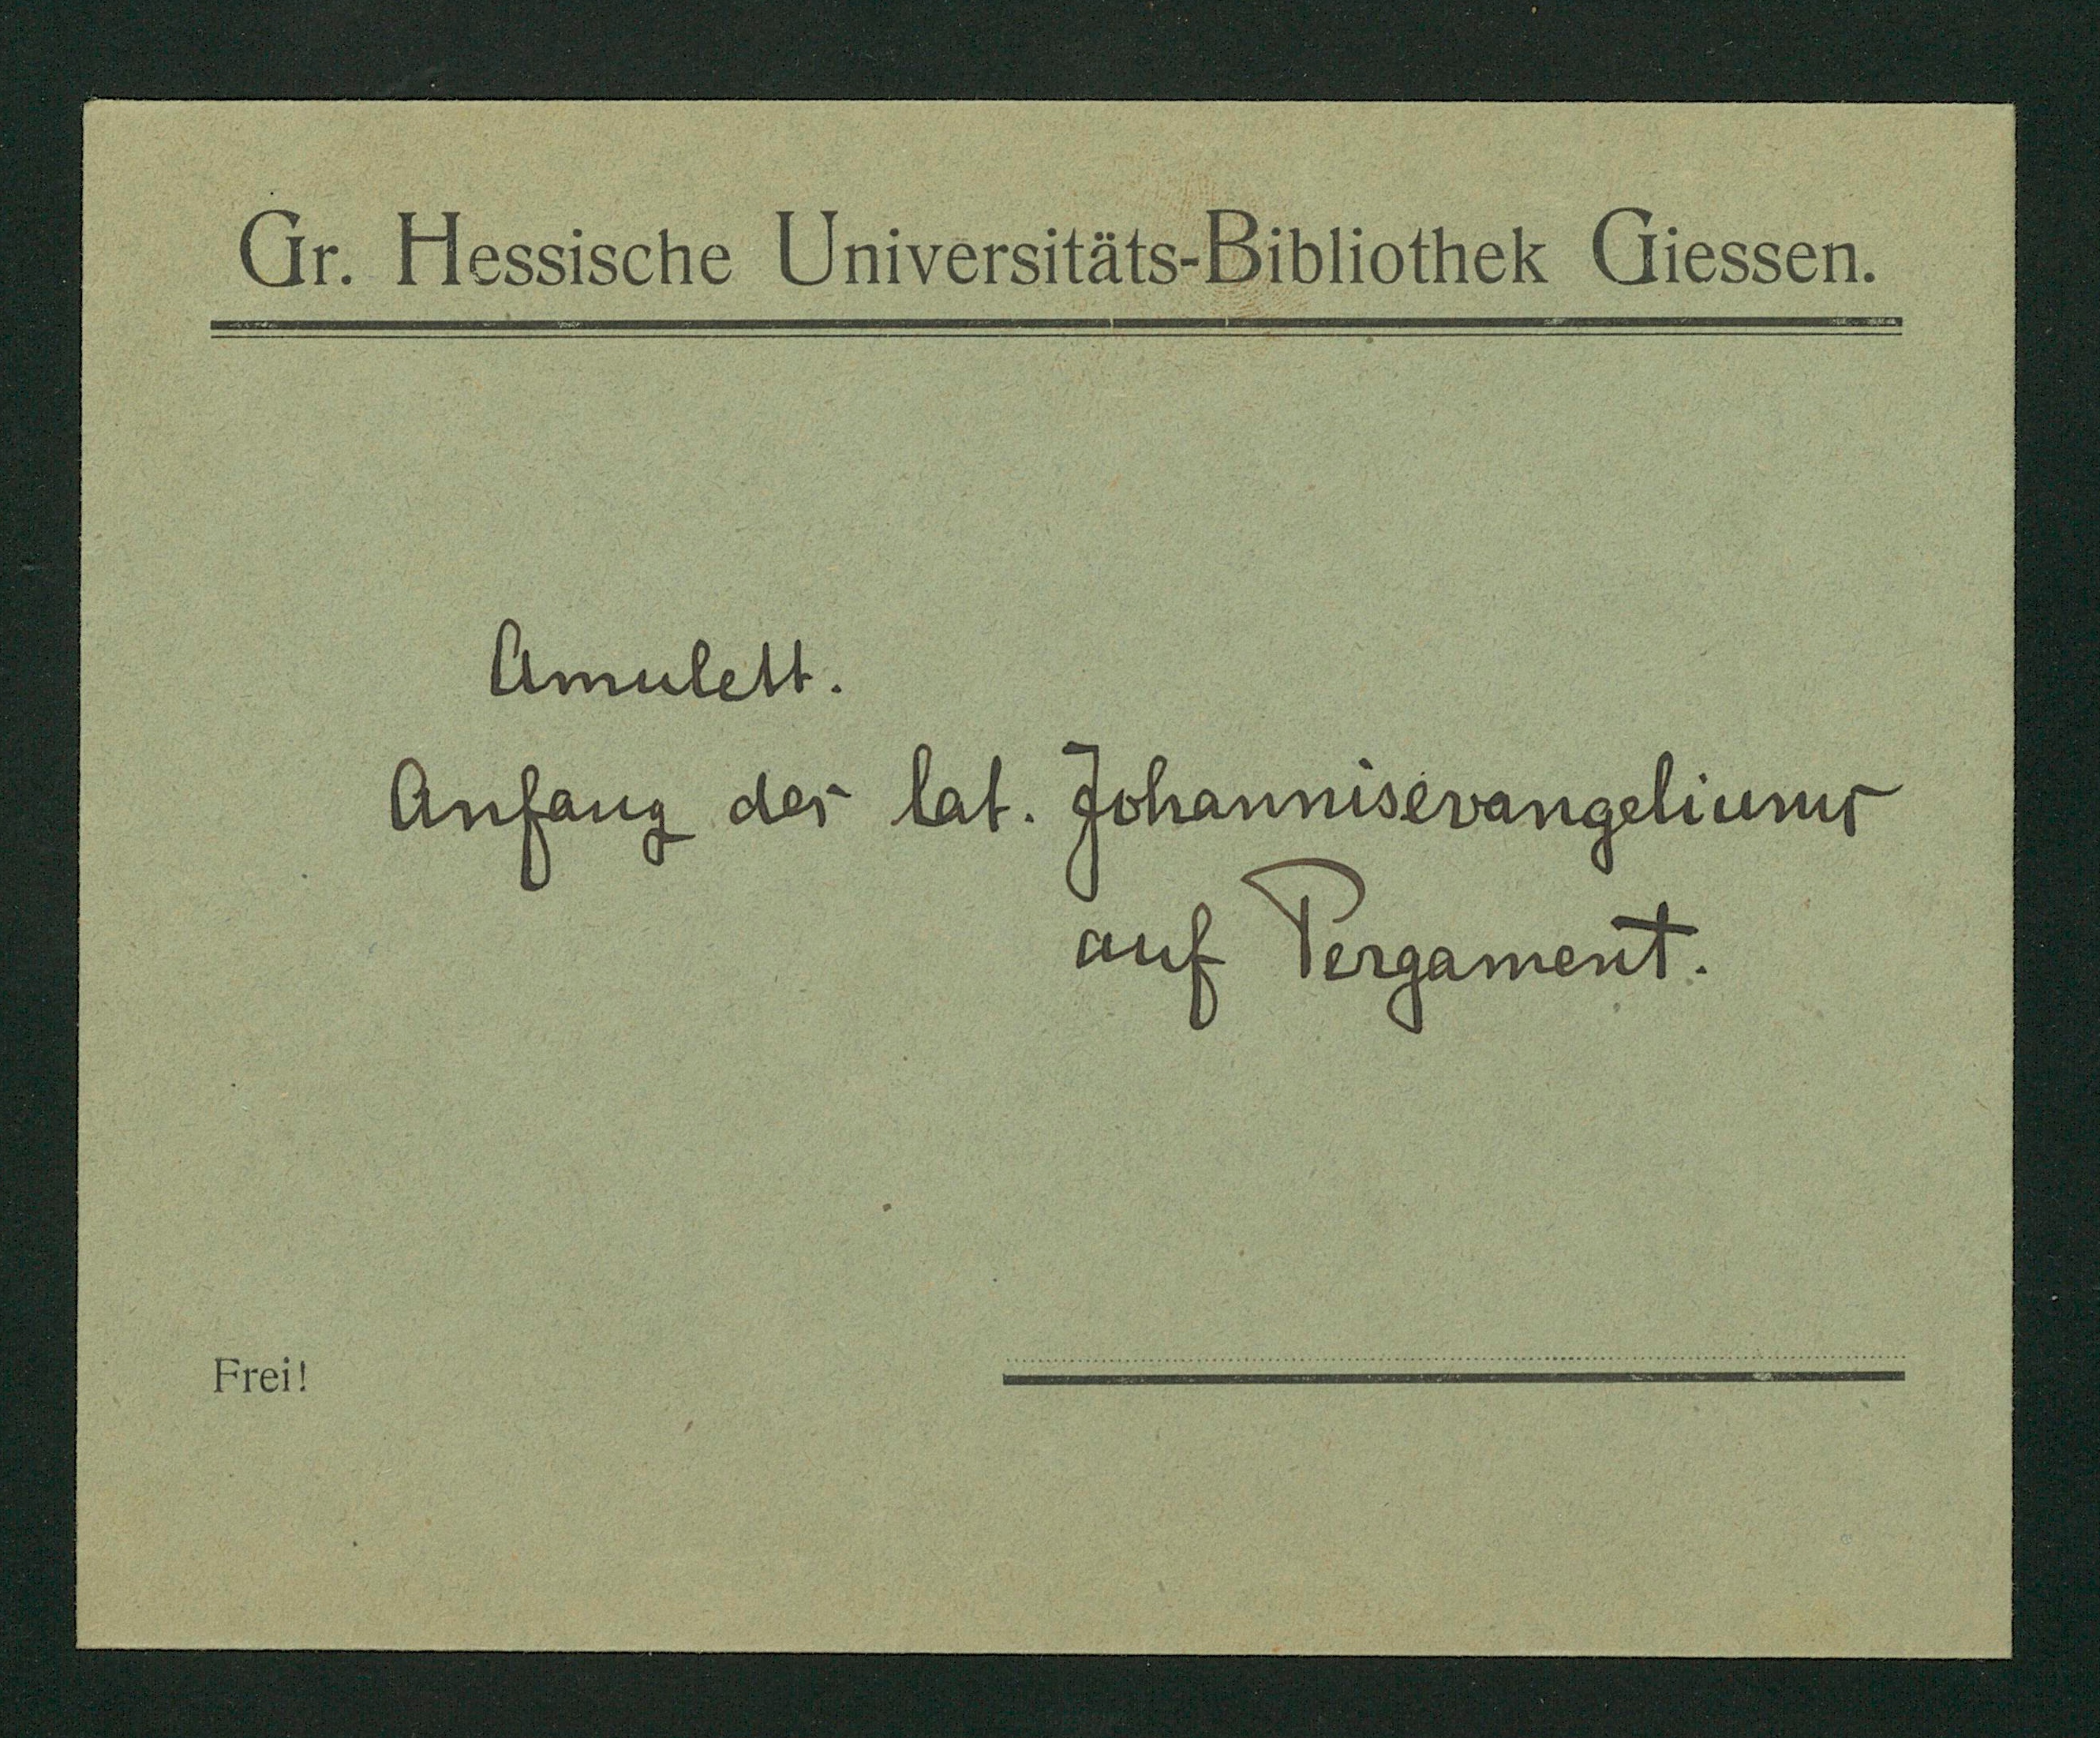 Gr. Hessische Universitäts-Bibliothek Giessen.
Amulett.
Anfang des lat. Johannisevangeliums
auf Pergament.
Frei!